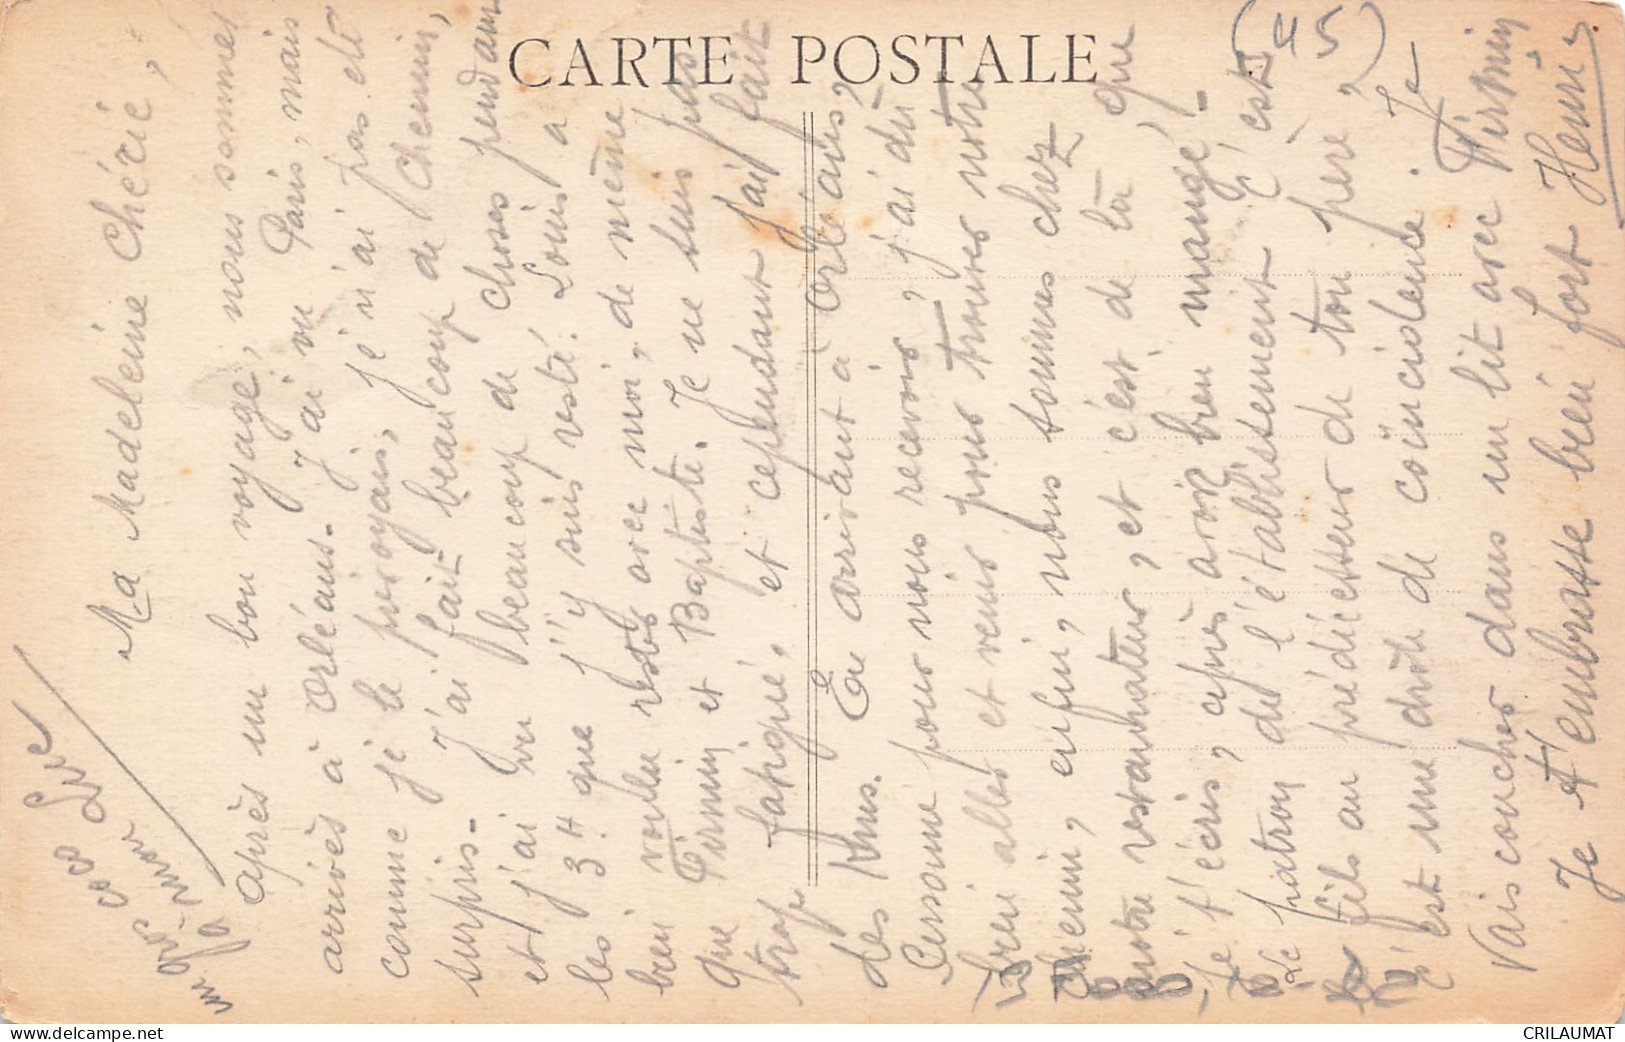 CARTE POSTALE
(45)
Ma Madeleine Chérie,
Après un bon voyage, nous sommes
arrivés à Orléans. J'ai vu Paris, mais
comme je le prévoyais, je n'ai pas été
surpris. J'ai fait beaucoup de chemin,
et j'ai vu beaucoup de choses pendant
les 3 H que j'y suis resté. Louis a
bien voulu rester avec moi, de même
que Firmin et Baptiste. Je ne suis pas
trop fatigué, et cependant j'ai fait
des Kms. En arrivant à Orléans,
Personne pour nous recevoir, j'ai dû
bien aller et venir pour trouver notre
chemin, enfin, nous sommes chez
notre restaurateur, et c'est de là que
je t'écris, après avoir bien mangé.
Le patron de l'établissement c'est
le fils au prédécesseur de ton père,
c'est une drôle de coïncidence. Je
Vais coucher dans un lit avec Firmin
Je t'embrasse bien fort Henri